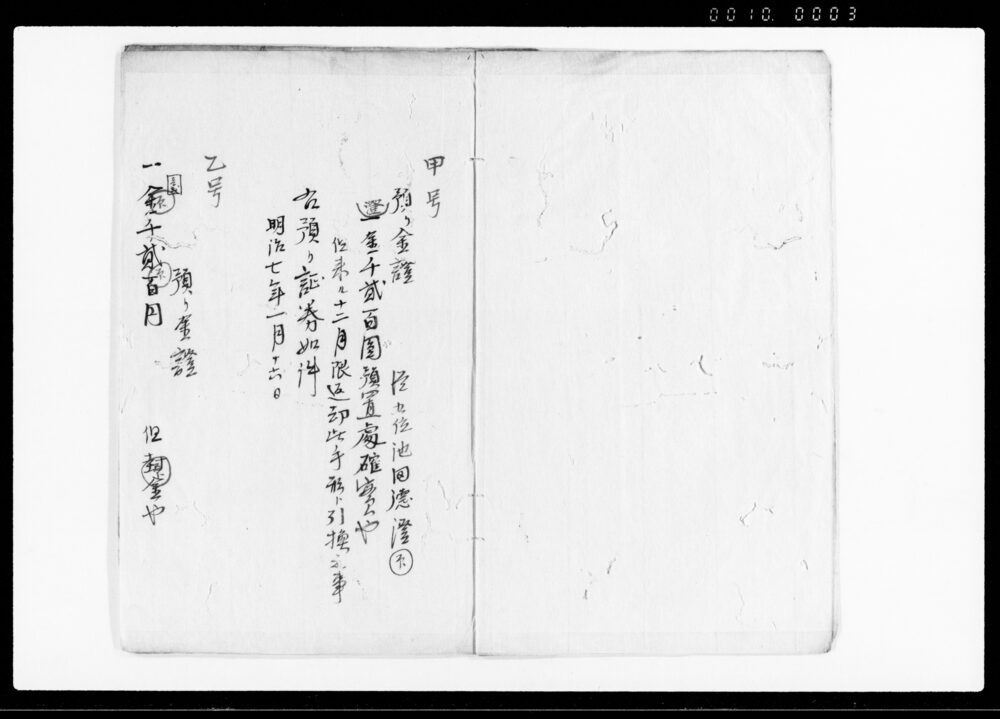 0010 0003
甲号
預り金證 従五位池田德澄 印
證 一金千貳百圓預置處確實也
但来ル十二月限返却此手形ト引換之事
右預り証券如件
明治七年一月十六日
乙号
預り金證
一金千貳百円 但封金也